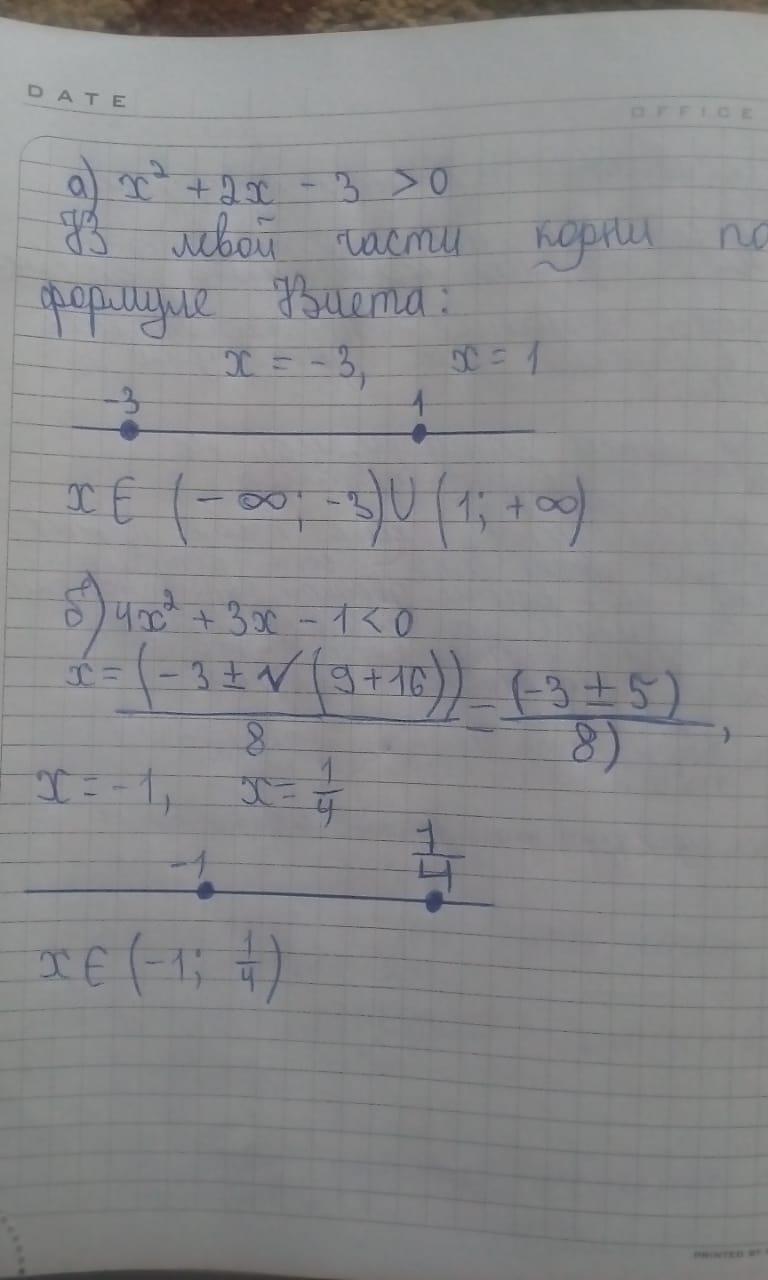 DATE
OFFICE
а) x² + 2x - 3 > 0
В левой части корни по
формуле Виета:
x = -3, x = 1
-3 1
x ∈ (-∞; -3) ∪ (1; +∞)
б) 4x² + 3x - 1 < 0
x = (-3 ± √(9+16))/8 = (-3 ± 5)/8),
x = -1, x = 1/4
-1 1/4
x ∈ (-1; 1/4)
PRINTED BY